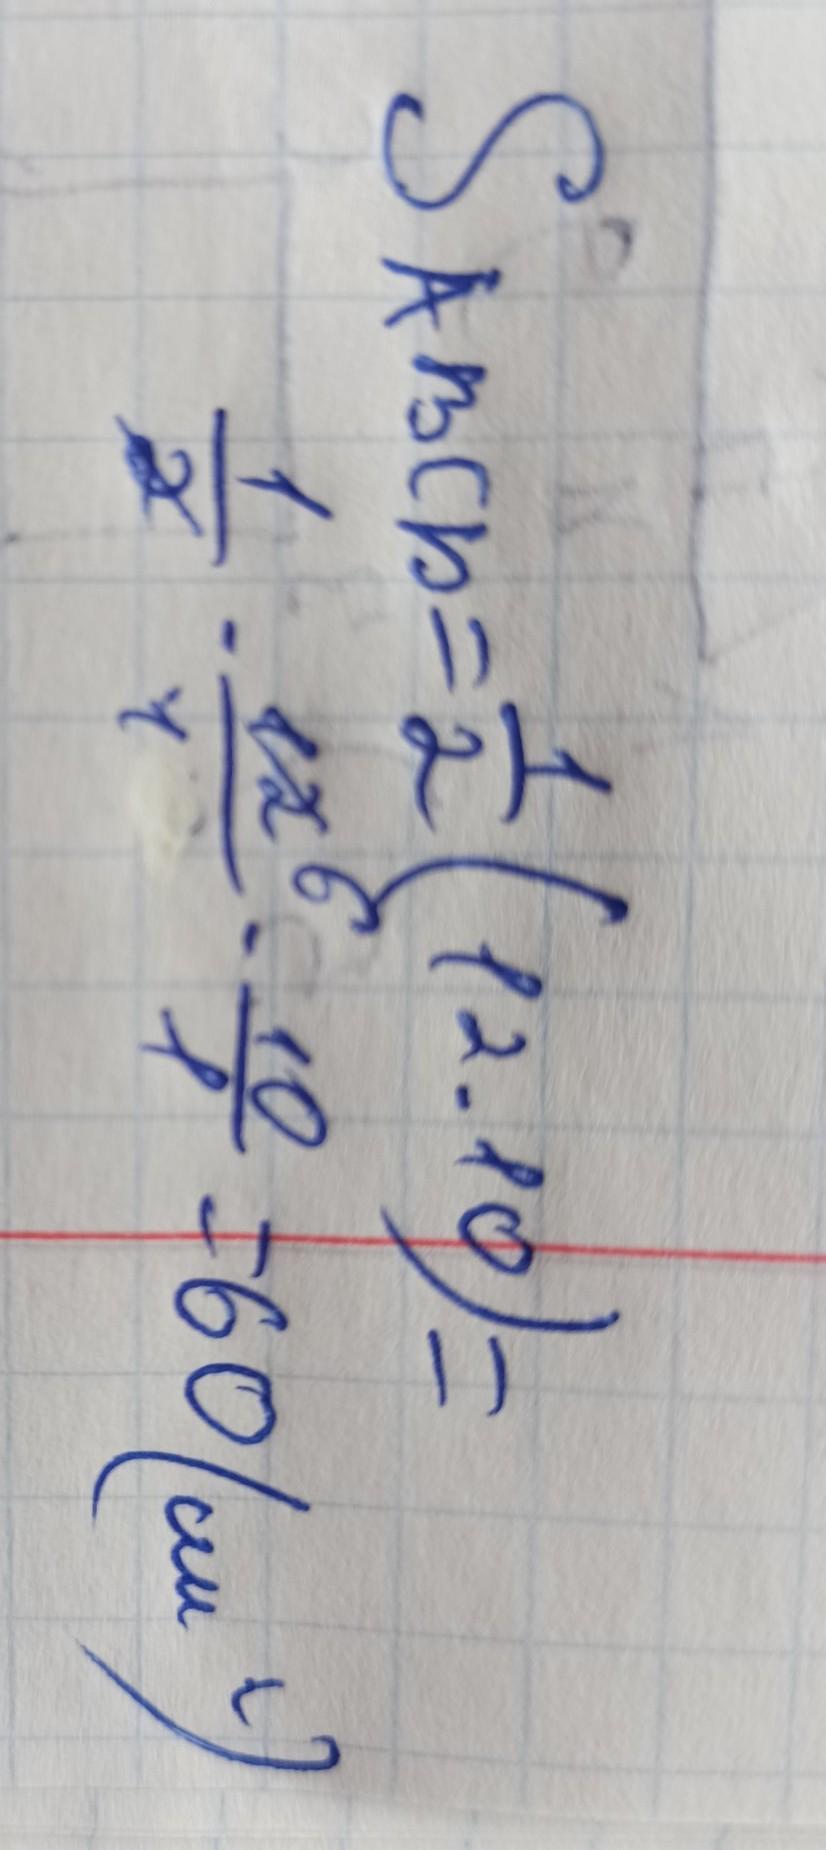 S ABCD = 1/2 (12 · 10) =
1/2 · 12 6/1 · 10/1 = 60 (см²)